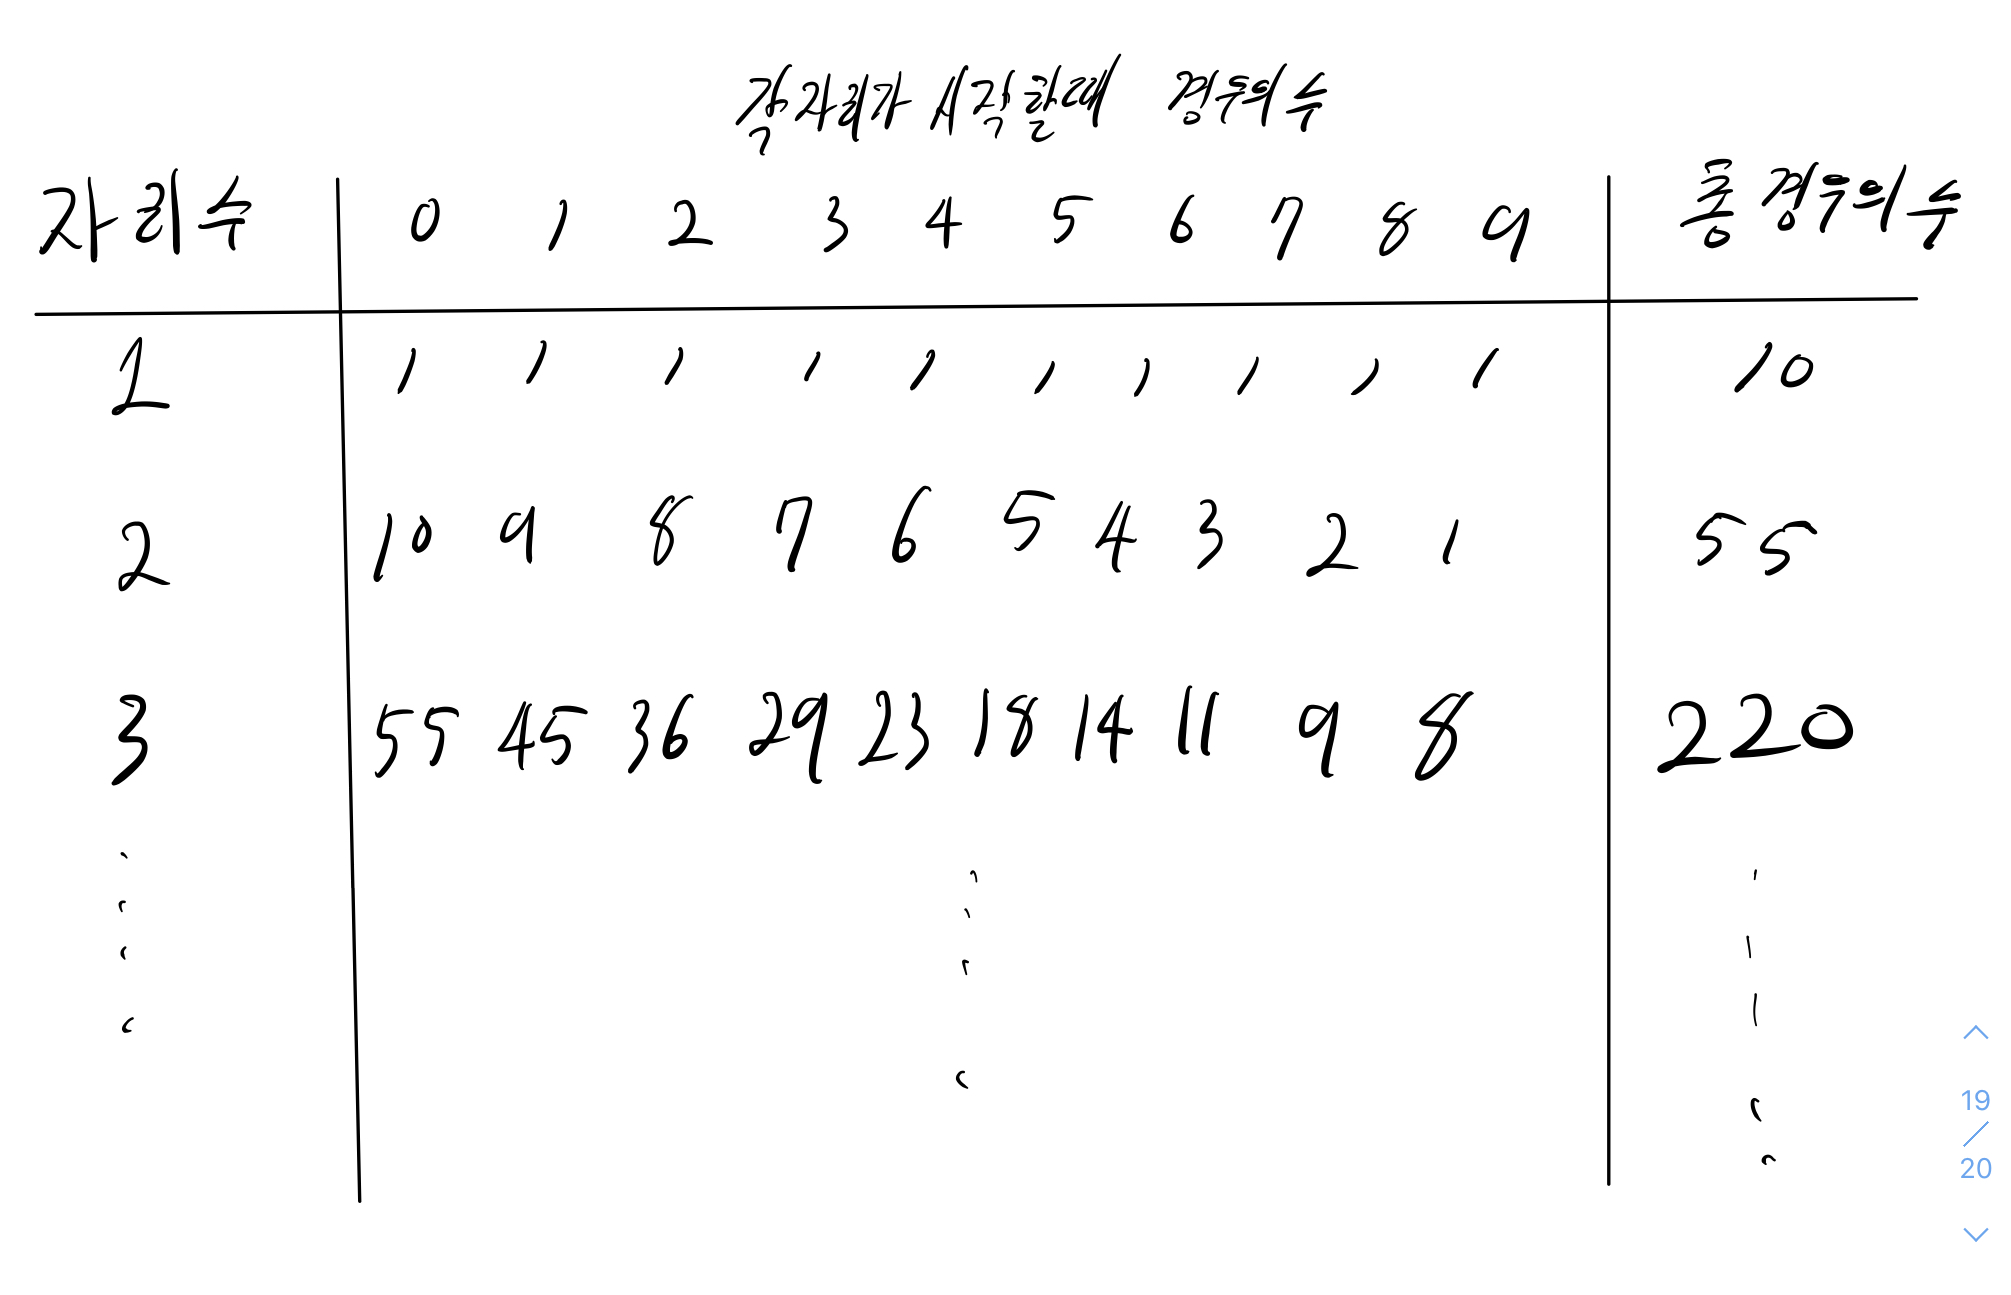 각 자리가 시작할때 경우의 수
자리수 0 1 2 3 4 5 6 7 8 9 총 경우의 수
1 1 1 1 1 1 1 1 1 1 1 10
2 10 9 8 7 6 5 4 3 2 1 55
3 55 45 36 29 23 18 14 11 9 8 220
19
/
20